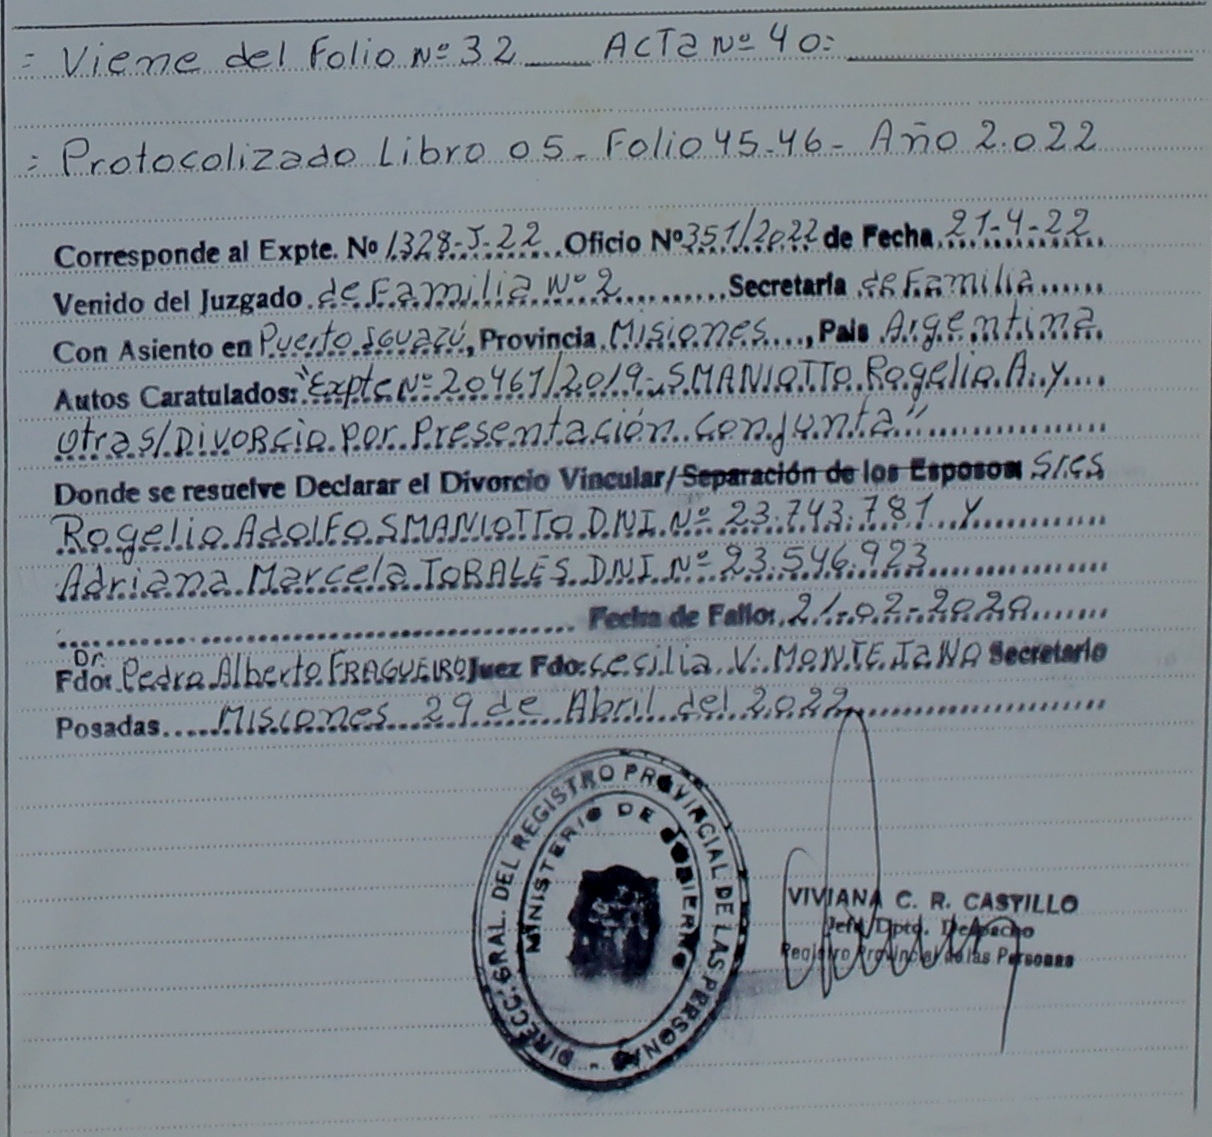 = Viene del Folio Nº 32 ___ Acta Nº 40=
= Protocolizado Libro 05 - Folio 45-46 - Año 2.022
Corresponde al Expte. Nº 1328-J-22 Oficio Nº 351/2022 de Fecha 21-4-22
Venido del Juzgado de Familia Nº 2 Secretaría de Familia
Con Asiento en Puerto Iguazú, Provincia Misiones, País Argentina
Autos Caratulados: "Expte Nº 20461/2019 - SMANIOTTO Rogelio A. y
otra s/ DIVORCIO por Presentación Conjunta"
Donde se resuelve Declarar el Divorcio Vincular/Separación de los Esposos Sres
Rogelio Adolfo SMANIOTTO DNI Nº 23.743.781 y
Adriana Marcela TORALES DNI Nº 23.546.923
Fecha de Fallo: 21-02-2020
Fdo: Dr. Pedro Alberto FRAGUEIRO Juez Fdo: Cecilia V. MONTEJANO Secretario
Posadas Misiones 29 de Abril del 2022
DIRECC. GRAL. DEL REGISTRO PROVINCIAL DE LAS PERSONAS
MINISTERIO DE GOBIERNO
VIVIANA C. R. CASTILLO
Jefa Dpto. Despacho
Registro Provincial de las Personas